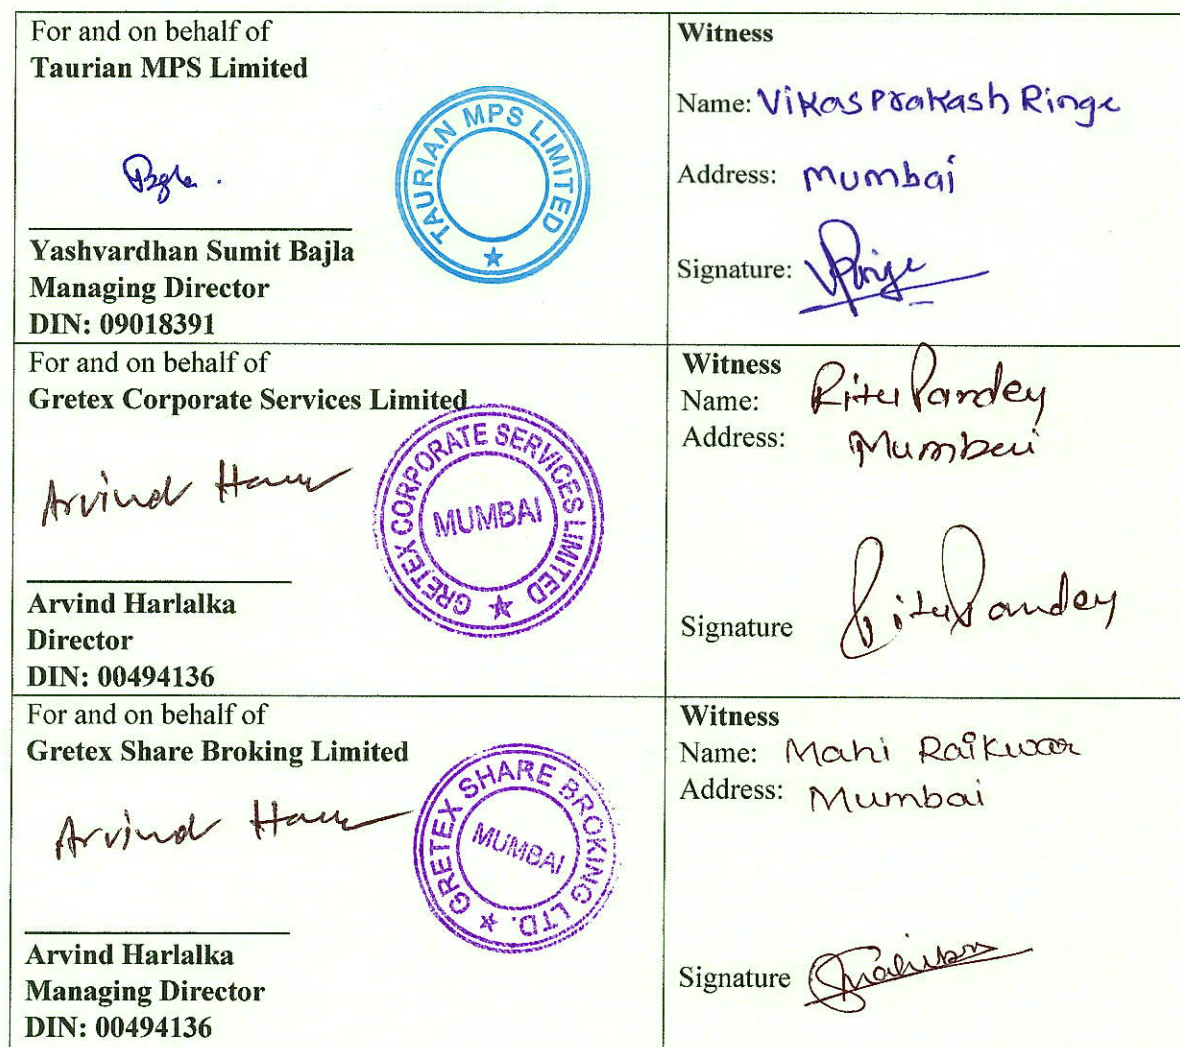 For and on behalf of
Taurian MPS Limited
TAURIAN MPS LIMITED
Yashvardhan Sumit Bajla
Managing Director
DIN: 09018391
Witness
Name: Vikas Prakash Ringe
Address: Mumbai
Signature: VRinge
For and on behalf of
Gretex Corporate Services Limited
Arvind
GRETEX CORPORATE SERVICES LIMITED
MUMBAI
Arvind Harlalka
Director
DIN: 00494136
Witness
Name: Ritu Pandey
Address: Mumbai
Signature Ritu Pandey
For and on behalf of
Gretex Share Broking Limited
Arvind
GRETEX SHARE BROKING LTD.
MUMBAI
Arvind Harlalka
Managing Director
DIN: 00494136
Witness
Name: Mahi Raikwar
Address: Mumbai
Signature